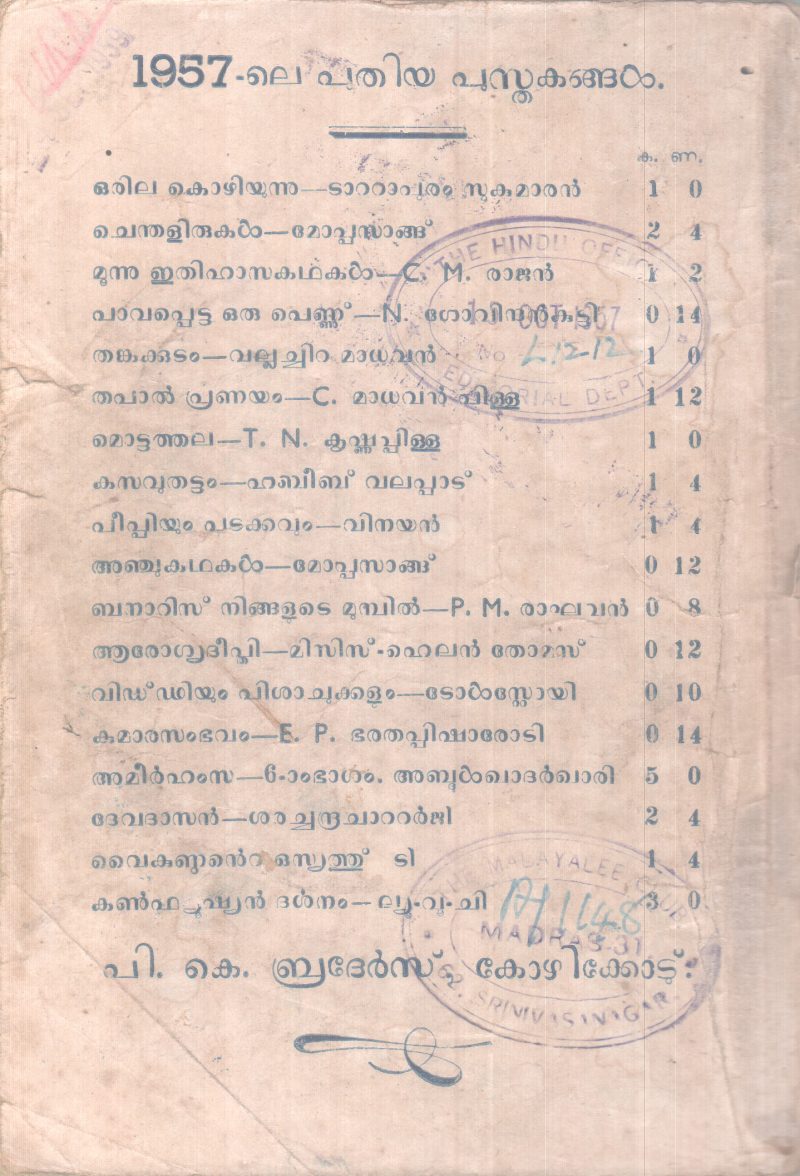 1957-ലെ പുതിയ പുസ്തകങ്ങൾ.
ക. ണ.
ഒരില കൊഴിയുന്നു—ടാററാപുരം സുകുമാരൻ 1 0
ചെന്തളിരുകൾ—മോപ്പസാങ്ങ് 2 4
മൂന്നു ഇതിഹാസകഥകൾ—C. M. രാജൻ 1 2
പാവപ്പെട്ട ഒരു പെണ്ണ്—N. ഗോവിന്ദൻകുട്ടി 0 14
തങ്കക്കുടം—വല്ലച്ചിറ മാധവൻ 1 0
തപാൽ പ്രണയം—C. മാധവൻ പിള്ള 1 12
മൊട്ടത്തല—T. N. കൃഷ്ണപ്പിള്ള 1 0
കസവുതട്ടം—ഹബീബ് വലപ്പാട് 1 4
പീപ്പിയും പടക്കവും—വിനയൻ 1 4
അഞ്ചുകഥകൾ—മോപ്പസാങ്ങ് 0 12
ബനാറിസ് നിങ്ങളുടെ മുമ്പിൽ—P. M. രാഘവൻ 0 8
ആരോഗ്യദീപ്തി—മിസിസ്-ഹെലൻ തോമസ് 0 12
വിഡ്ഢിയും പിശാചുക്കളും—ടോൾസ്റ്റോയി 0 10
കുമാരസംഭവം—E. P. ഭരതപ്പിഷാരോടി 0 14
അമീർഹംസ—൧-ാംഭാഗം. അബ്ദുൾഖാദർഖാരി 5 0
ദേവദാസൻ—ശരച്ചന്ദ്രചാററർജി 2 4
വൈകുണ്ഠൻെറ ഒസ്യത്ത് ടി 1 4
കൺഫ്യൂഷ്യൻ ദർശനം—ല്യൂ-വൂ-ചി 3 0
പി. കെ. ബ്രദേർസ് കോഴിക്കോടു്.
THE HINDU OFFICE
OCT 1957
No L12-12
EDITORIAL DEPT
THE MALAYALEE CLUB
A/1148
MADRAS-31
SRINIVASANAGAR